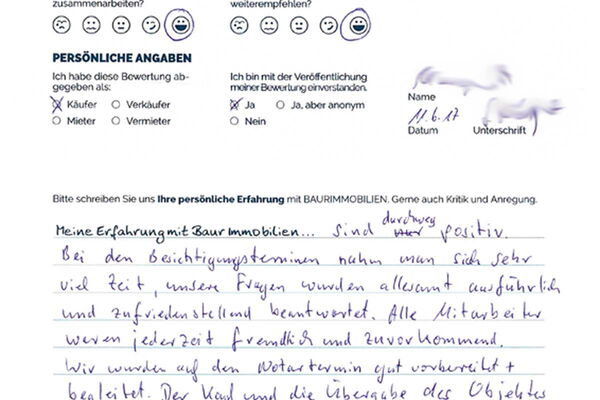 zusammenarbeiten?
weiterempfehlen?
PERSÖNLICHE ANGABEN
Ich habe diese Bewertung ab-
gegeben als:
Käufer Verkäufer
Mieter Vermieter
Ich bin mit der Veröffentlichung
meiner Bewertung einverstanden.
Ja Ja, aber anonym
Nein
Name
11.6.17
Datum Unterschrift
Bitte schreiben Sie uns Ihre persönliche Erfahrung mit BAURIMMOBILIEN. Gerne auch Kritik und Anregung.
Meine Erfahrung mit Baur Immobilien... sind durchweg positiv.
Bei den Besichtigungsterminen nahm man sich sehr
viel Zeit, unsere Fragen wurden allesamt ausführlich
und zufriedenstellend beantwortet. Alle Mitarbeiter
waren jederzeit freundlich und zuvorkommend.
Wir wurden auf den Notartermin gut vorbereitet +
begleitet. Der Kauf und die Übergabe des Objektes